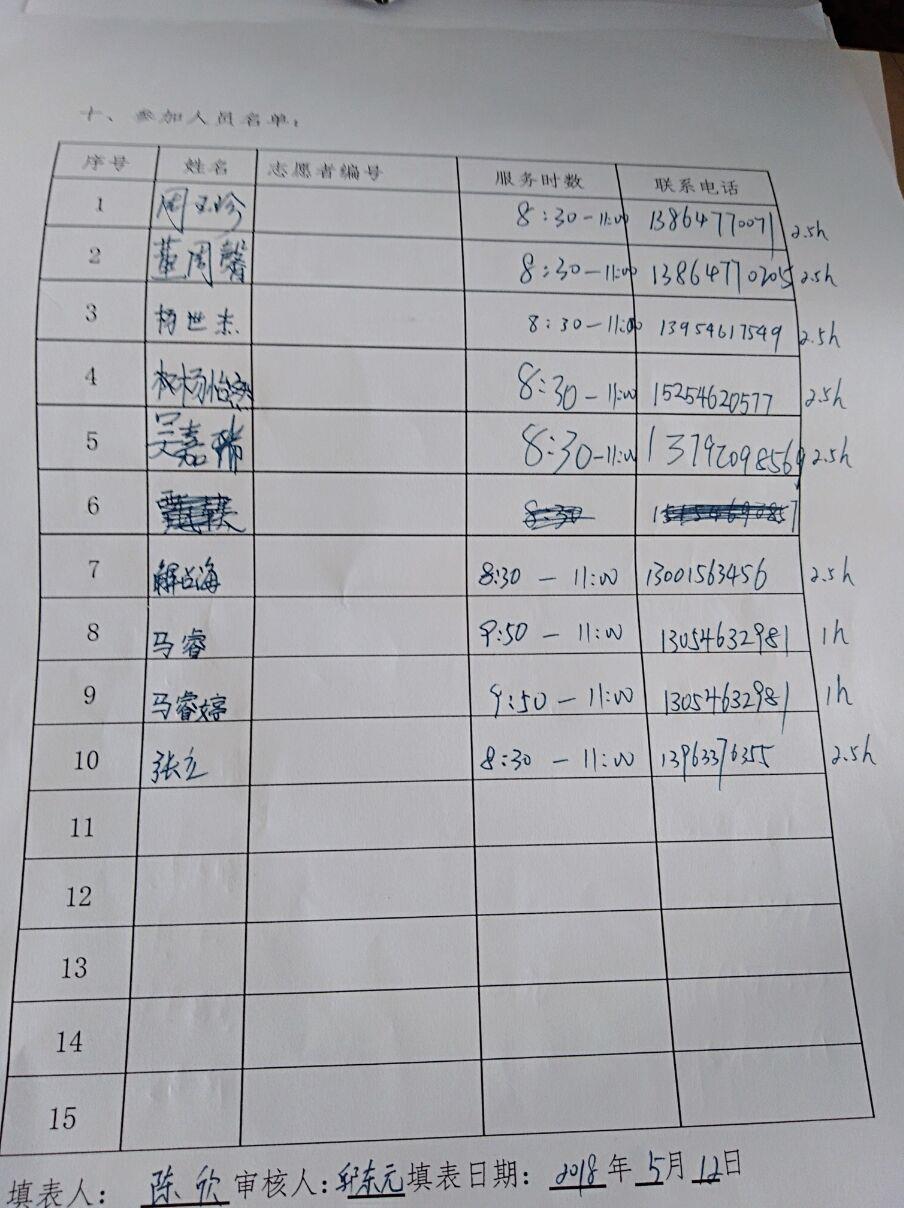 十、参加人员名单:
序号 姓名 志愿者编号 服务时数 联系电话
1 周玉珍 8:30-11:00 13864770071 2.5h
2 董周馨 8:30-11:00 13864770205 2.5h
3 杨世杰 8:30-11:00 13954617549 2.5h
4 权杨怡然 8:30-11:00 15254620577 2.5h
5 吴嘉瑞 8:30-11:00 13792098569 2.5h
6 8:30
7 解占海 8:30-11:00 13001563456 2.5h
8 马睿 9:50-11:00 13054632981 1h
9 马睿婷 9:50-11:00 13054632981 1h
10 张立 8:30-11:00 13963376355 2.5h
11
12
13
14
15
填表人: 陈欣 审核人: 东元 填表日期: 2018年5月12日